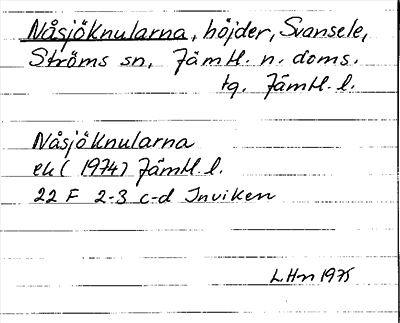 Nåsjöknularna, höjder, Svansele,
Ströms sn, Jämtl. n. doms.
tg. Jämtl. l.
Nåsjöknularna
ek (1974) Jämtl. l.
22 F 2-3 c-d Inviken
LHn 1975